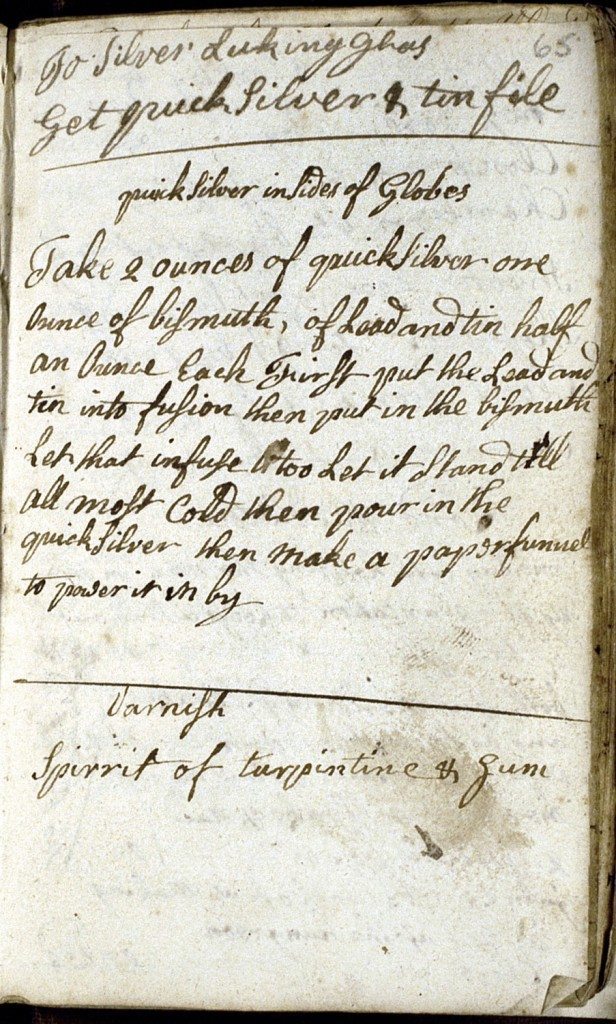 To Silver Luking Glas
65
Get quick Silver & tin file
quick Silver insides of Globes
Take 2 ounces of quick Silver one
Ounce of bismuth, of Lead and tin half
an Ounce Each First put the Lead and
tin into fusion then put in the bismuth
Let that infuse too Let it Stand till
all most Cold then pour in the
quick Silver then make a paper funnel
to power it in by
Varnish
Spirrit of turpintine & Gum